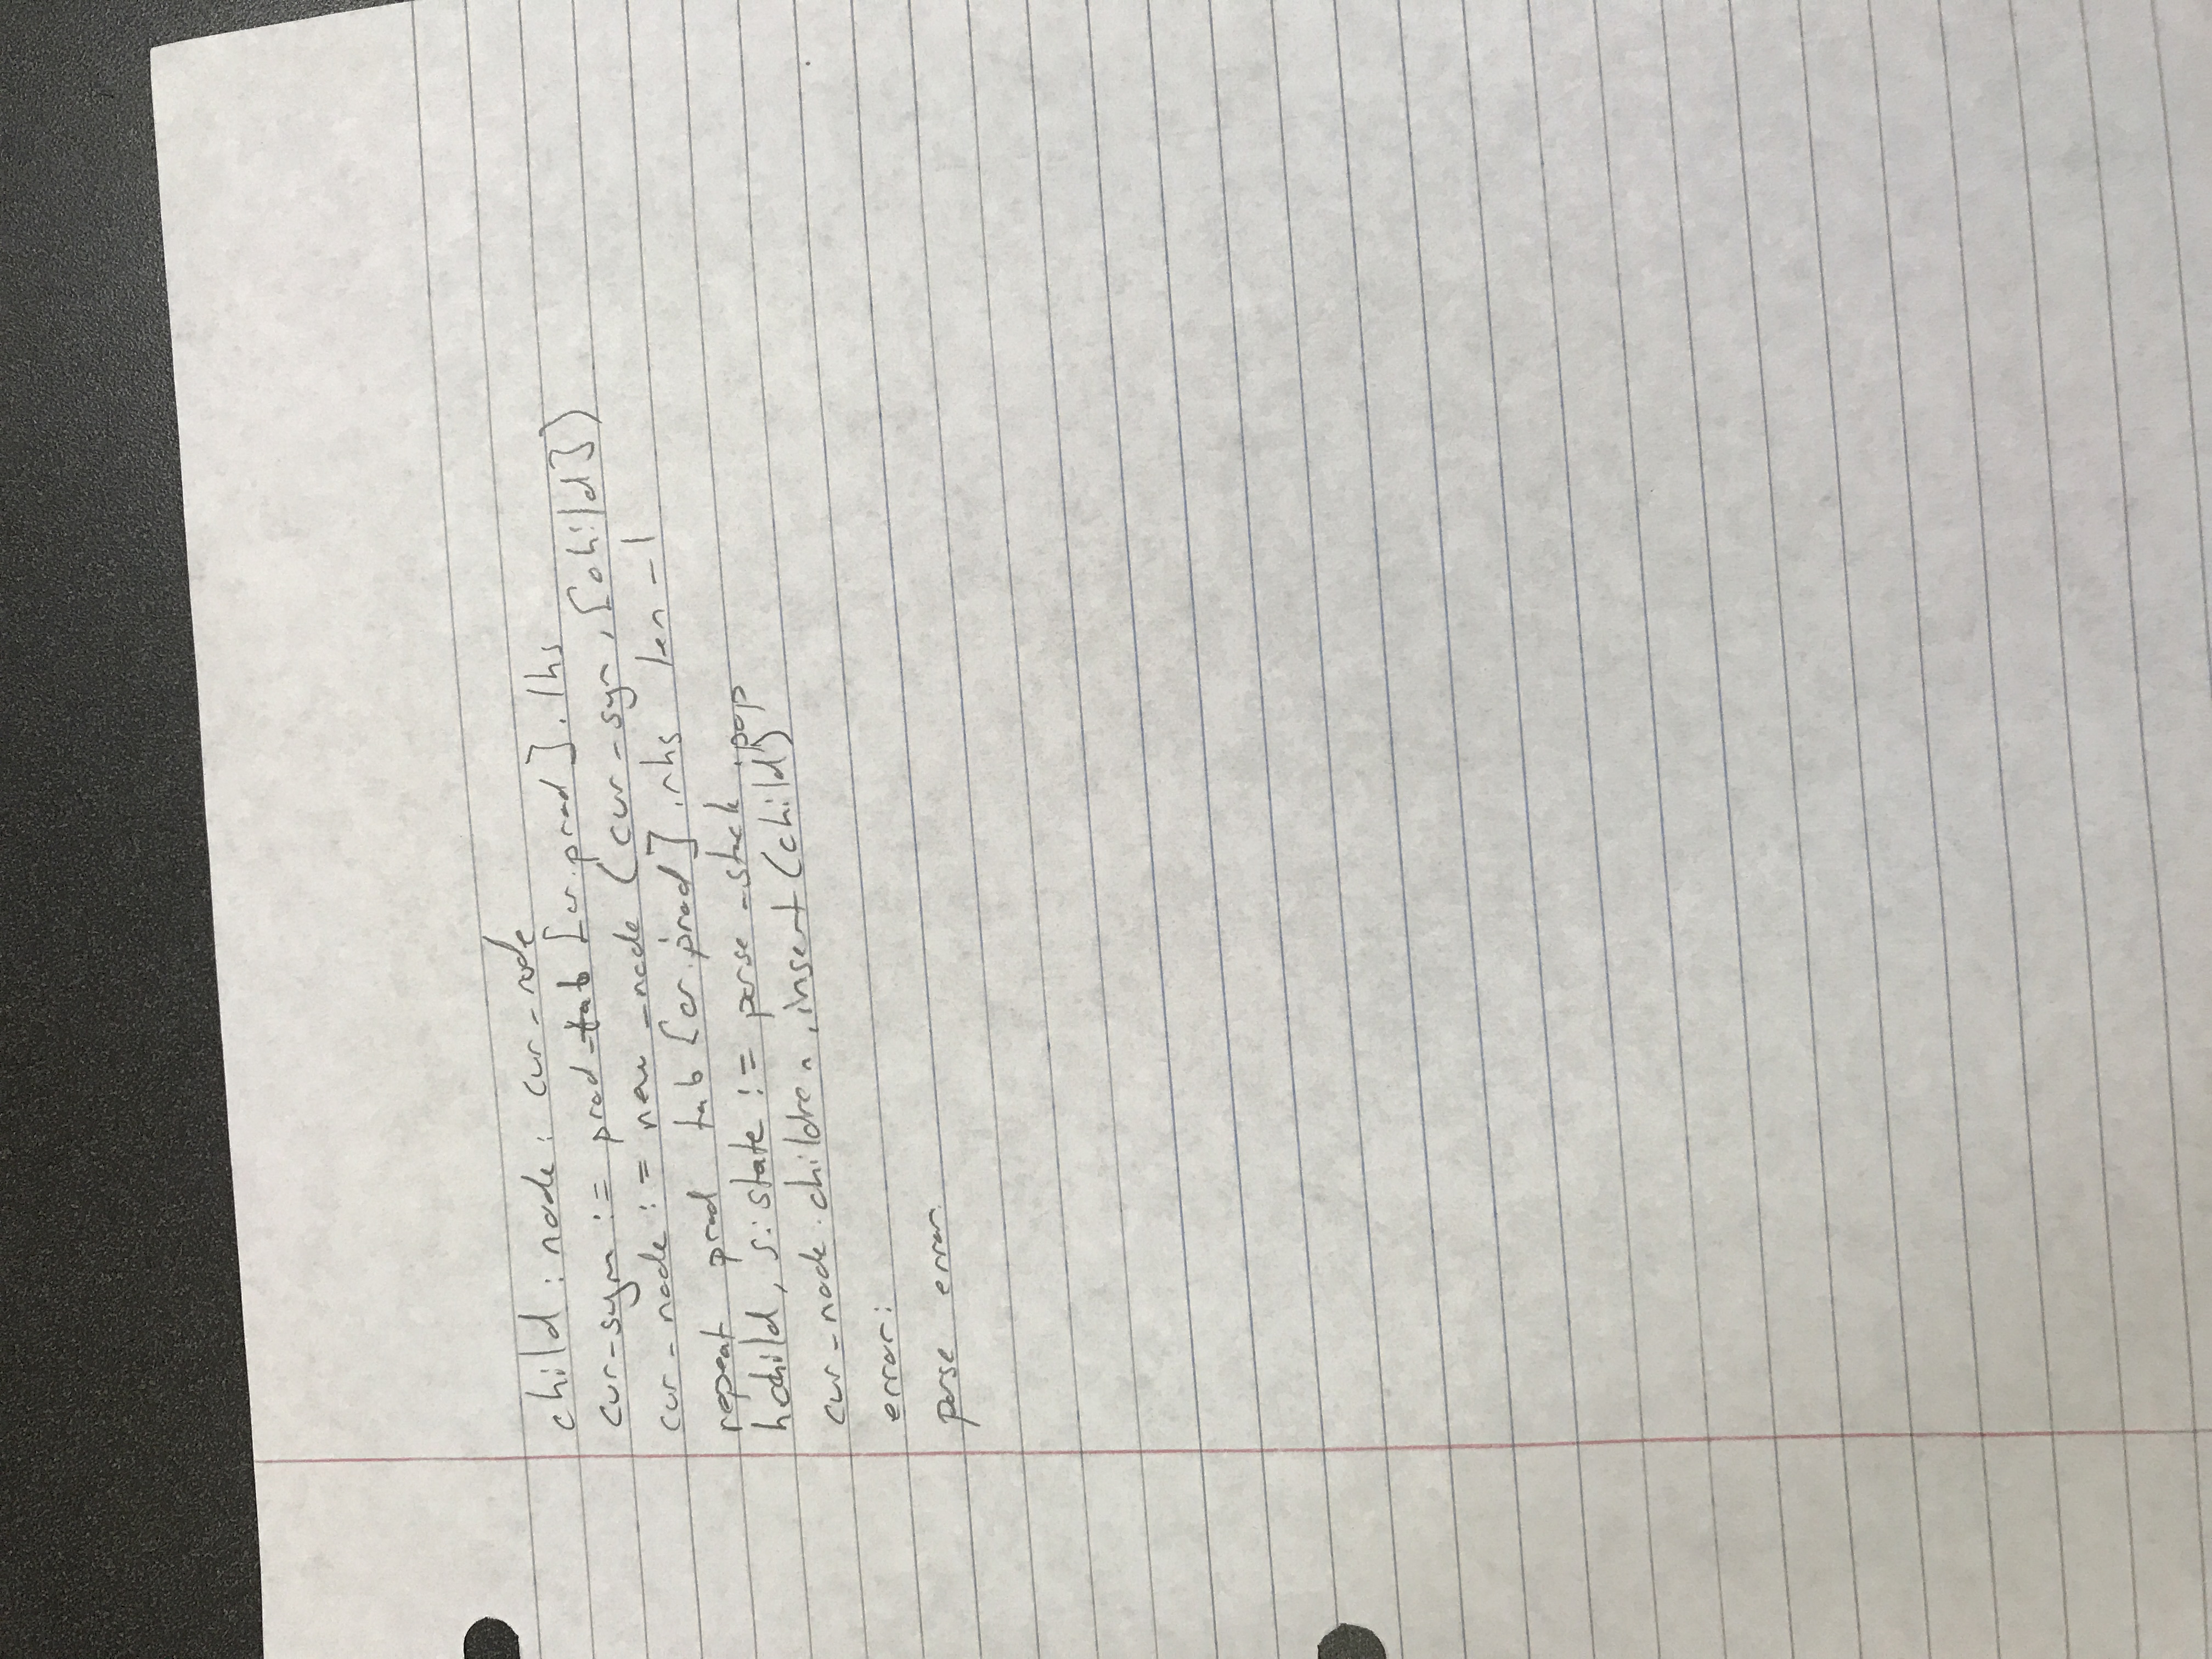 child : node : cur_node
cur-sym := prod_tab [cr.prod].lhs
cur_node := new_node (cur_sym, [child])
repeat prod tab [cr.prod].rhs len-1
hchild, s:state := parse_stack.pop
cur_node.children.insert(child)
error:
parse error